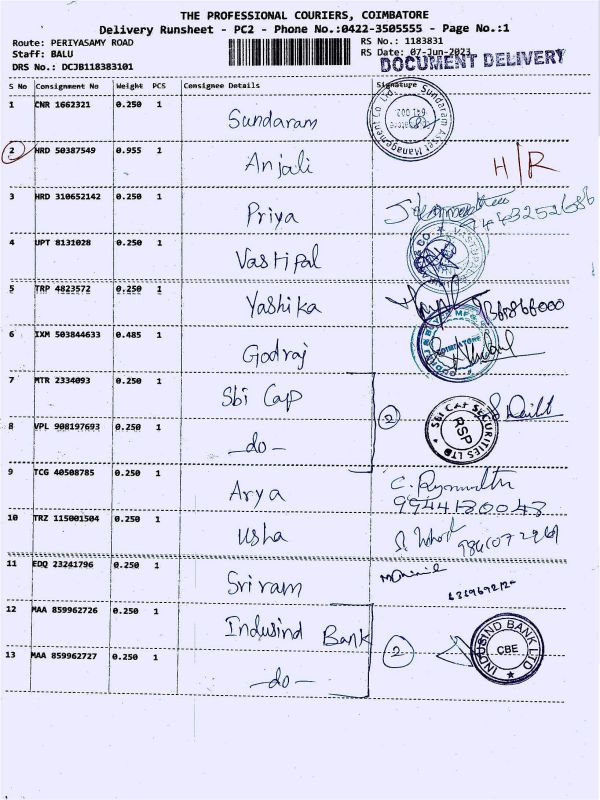 THE PROFESSIONAL COURIERS, COIMBATORE
Delivery Runsheet - PC2 - Phone No.:0422-3505555 - Page No.:1
Route: PERIYASAMY ROAD RS No.: 1183831
Staff: BALU RS Date: 07-Jun-2023
DRS No.: DCJB118383101 DOCUMENT DELIVERY
S No Consignment No Weight PCS Consignee Details Signature
1 CNR 1662321 0.250 1 Sundaram Sundaram Asset Management Co Ltd
2 HRD 50387549 0.955 1 Anjali H/R
3 HRD 310652142 0.250 1 Priya 9443252686
4 UPT 8131028 0.250 1 Vastipal
5 TRP 4823572 0.250 1 Yashika
6 IXM 503844633 0.485 1 Godraj
7 MTR 2334093 0.250 1 Sbi Cap 2 SBI CAP SECURITIES LTD RSP
8 VPL 908197693 0.250 1 -do-
9 TCG 40508785 0.250 1 Arya 9944180048
10 TRZ 115001504 0.250 1 Usha
11 EDQ 23241796 0.250 1 Sriram
12 MAA 859962726 0.250 1 Indusind Bank 2 INDUSIND BANK LTD CBE
13 MAA 859962727 0.250 1 -do-